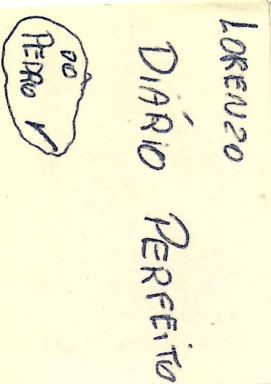 LORENZO
DIÁRIO PERFEITO
DO
PEDRO